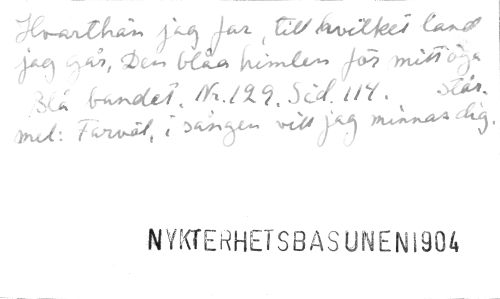 Hvarthän jag far, till hvilket land
jag går, Den blåa himlen för mitt öga
står.
Blå bandet. Nr. 129. Sid. 114.
mel: Farväl, i sången vill jag minnas dig.
NYKTERHETSBASUNEN1904